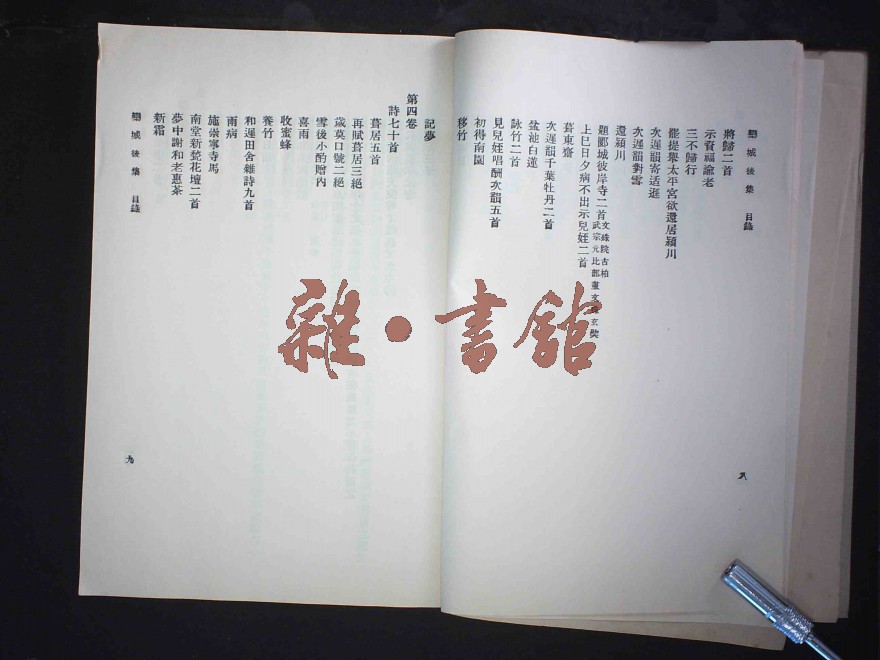 欒城後集　目錄
將歸二首
示資福諭老
三不歸行
罷提舉太平宮欲還居潁川
次遲韻寄适遜
次遲韻對雪
還潁川
題郾城彼岸寺二首 文殊院古柏 武宗元比部畫文殊玄奘
上巳日夕病不出示兒姪二首
葺東齋
次遲韻千葉牡丹二首
盆池白蓮
詠竹二首
見兒姪唱酬次韻五首
初得南園
移竹
八
記夢
第四卷
詩七十首
葺居五首
再賦葺居三絕
歲莫口號二絕
雪後小酌贈內
喜雨
收蜜蜂
養竹
和遲田舍雜詩九首
雨病
施崇寧寺馬
南堂新甃花壇二首
夢中謝和老惠茶
新霜
欒城後集　目錄
九
雜·書館